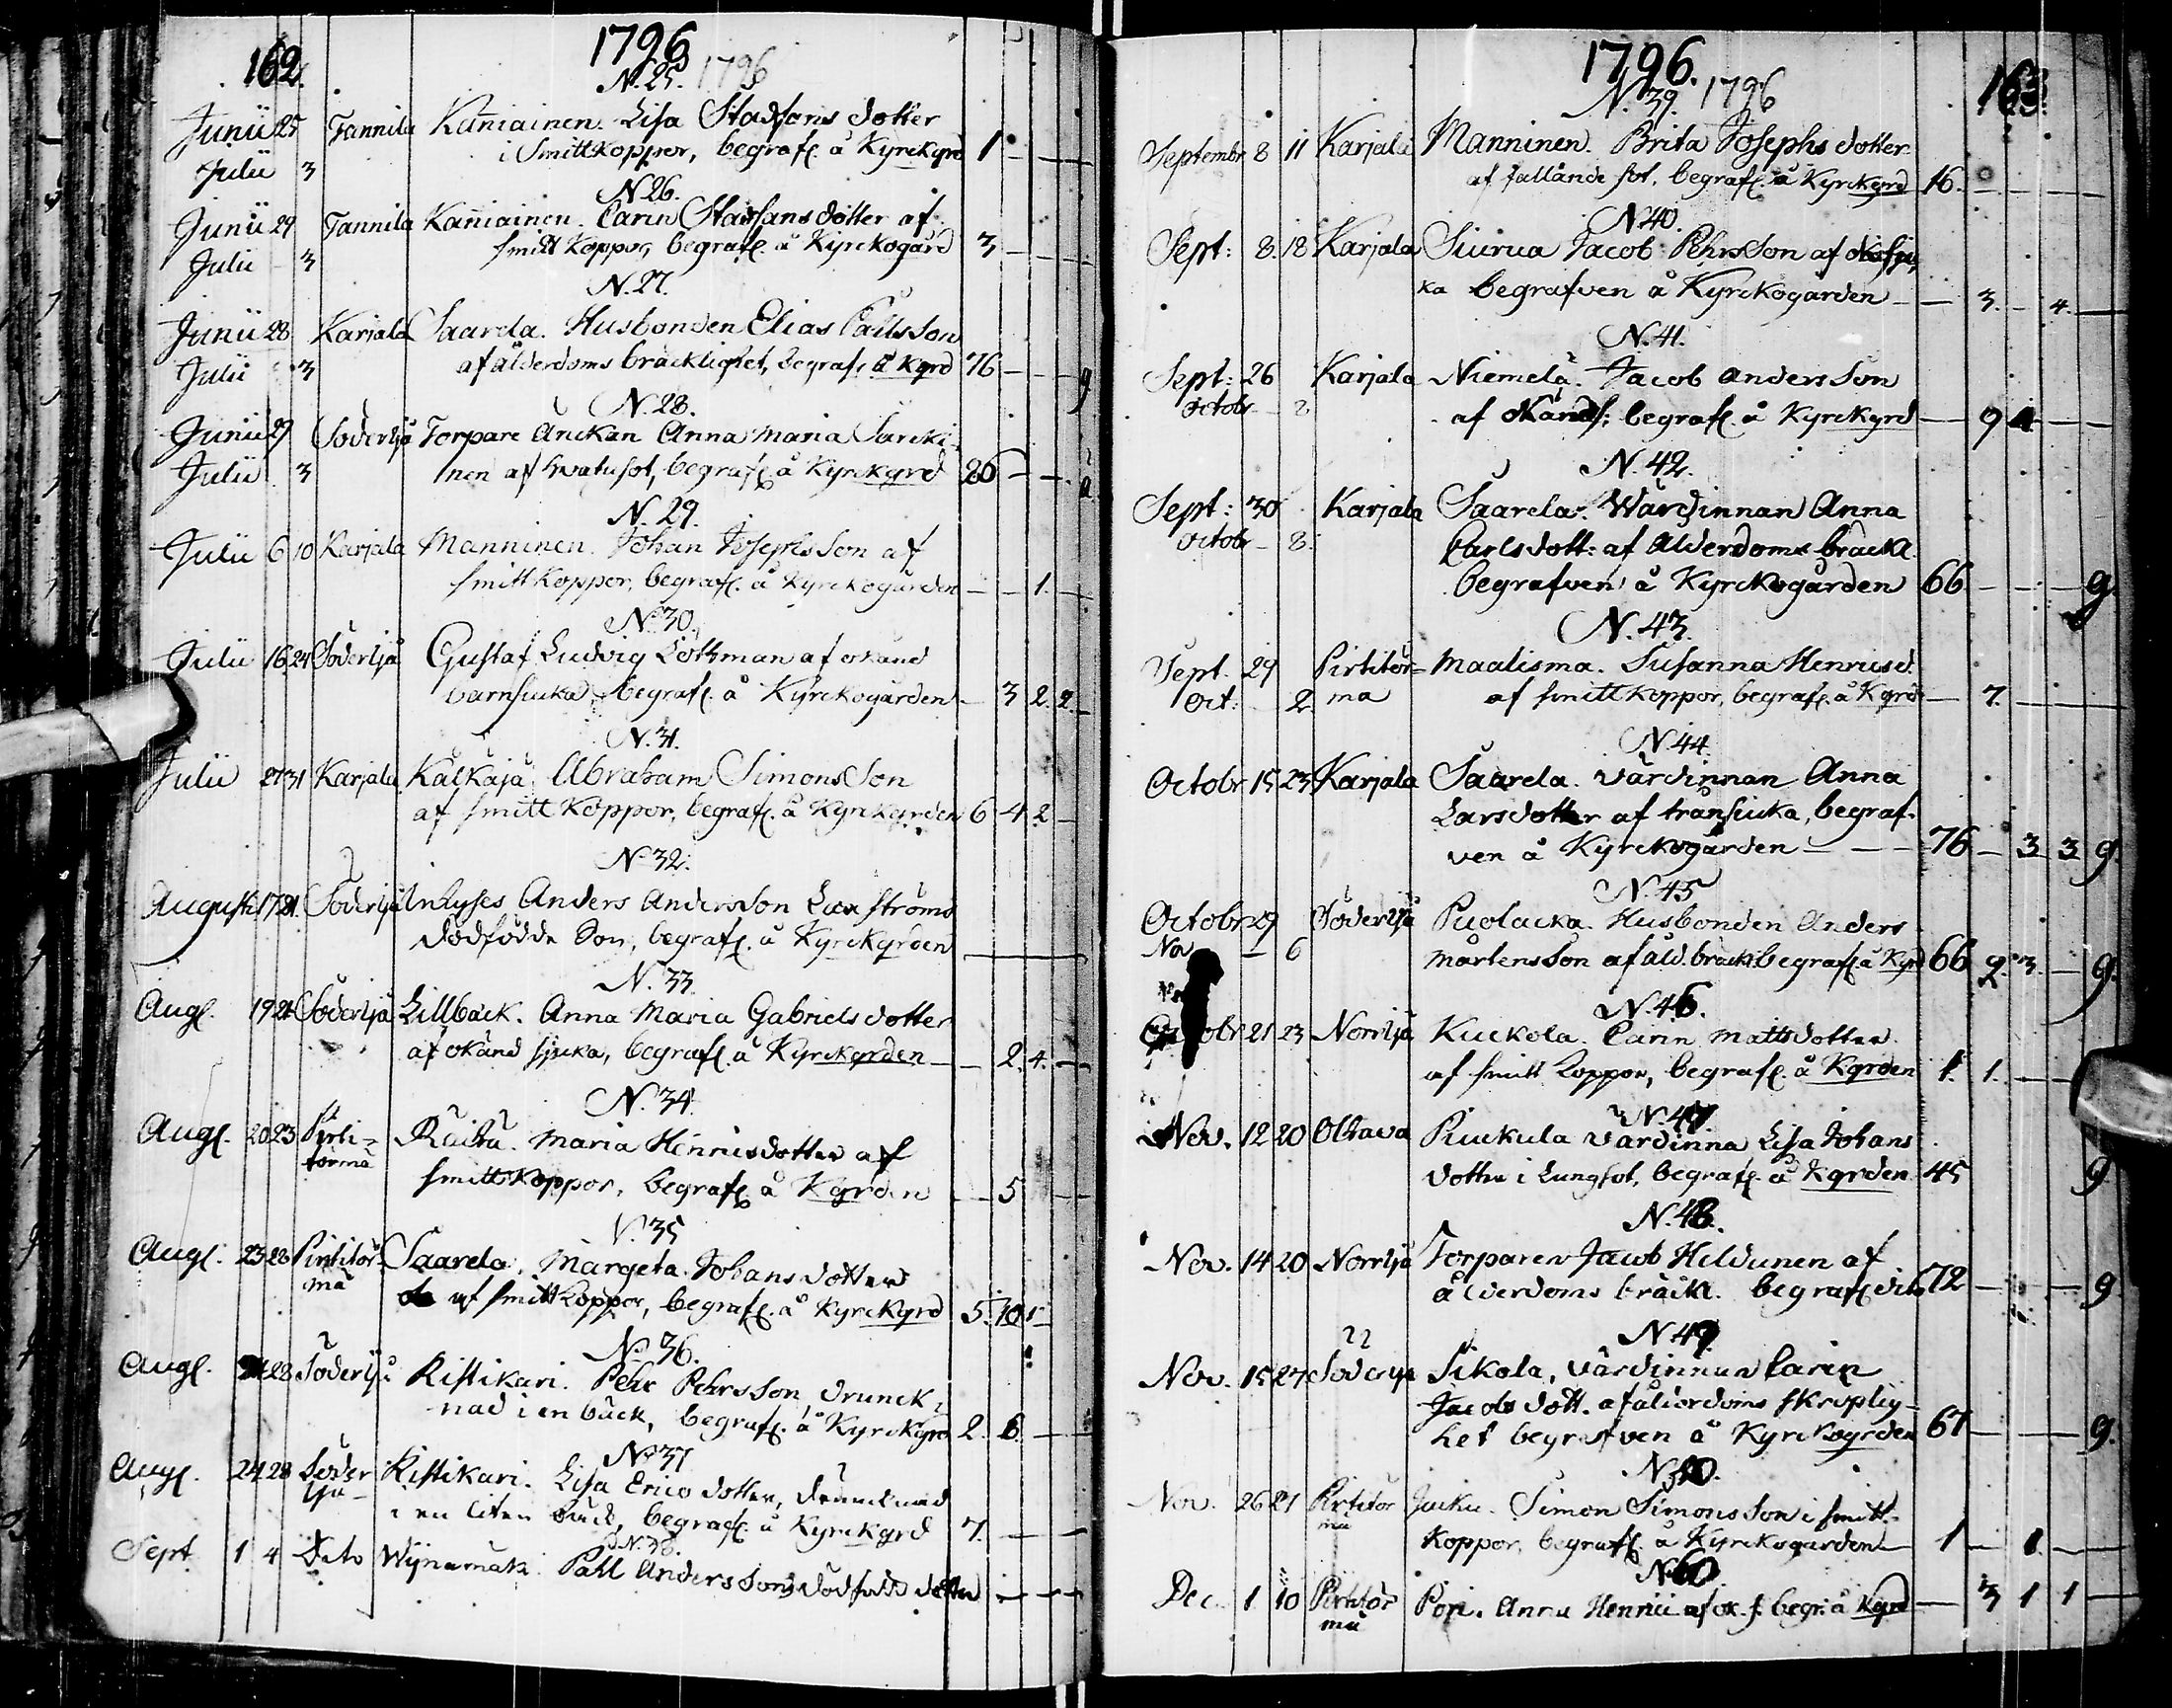 162.
1796
1796
N. 25.
Junii 25 Tannila Kañiainen. Lisa Staffans dotter
Julii 3 i Smittkoppor, begrafl. å Kyrckgrd 1
N 26.
Junii 29 Tannila Kañiainen. Carin Staffans dotter af
Julii 3 smitt Koppor, begrafl. å Kyrckogård 3
N. 27.
Junii 28 Karjala Saarela. Husbonden Elias Påhlsson
Julii 3 af ålderdoms bräcklighet, begraf. å Kgrd 76 g
N. 28.
Junii 29 Söderljå Torpare Änckan Anna Maria Sarcki-
Julii 3 nen af watusot, begrafl. å Kyrckgrd
N. 29.
Julii 6 10 Karjala Manninen. Johan Josephsson af
smittkoppor, begrafl. å Kyrckogården 1.
N. 30.
Julii 16 24 Söderljå Gustaf Ludvig Lothman af okänd
barnsiucka, begrafl. å Kyrckogården 3 2 2
N. 31.
Julii 27 31 Karjala Kälkäjä. Abraham Simonsson
af smitt Koppor, begrafl. å Kyrckgrden 6 4 2
N. 32.
Augusti 17 21. Söderljå Inhyses Anders Andersson Laxströms
dödfödde Son, begrafl. å Kyrckgrden
N. 33.
Augl. 19 21 Söderljå Lillbäck. Anna Maria Gabrielsdotter
af okänd sjucka, begrafl. å Kyrckgrden 2. 4.
N. 34.
Augl. 20 23 Pirti= Maria Henricsdotter af
törmä smittkoppor, begrafl. å Kgrden 5
N. 35
Augl. 23 28 Pirtitör- Saarela. Margeta Johansdotter
mä af smittkoppor, begrafl. å Kyrckgrd 5. 10 1
N. 36.
Augl. 24 28 Söderljå Ristikari. Pehr Pehrsson, drunck-
nad i en bäck, begrafl. å Kyrckgrd 2. 6.
N. 37
Augl. 24 28 Söder Ristikari. Lisa Ericsdotter, druncknad
ljå i en liten bäck, begrafl. å Kyrckgrd 7.
N. 38.
Sept 1 4 Dito Wijnamäki. Påhl Anderssons dödfödde dotter
163.
1796.
1796
N. 39.
Septembr. 8 11 Karjala Manninen. Brita Josephsdotter
af fallande sot, begrafl. å Kyrckgrd 16.
N 40.
Sept: 8. 18 Karjala Siurua Jacob Pehrsson af
ka begrafven å Kyrckogården 3. 4.
N. 41.
Sept: 26 Karjala Niemelä. Jacob Andersson
Octobr 2 af begrafl. å Kyrckgrd 9 4
N. 42.
Sept: 30 Karjala Saarela. Wärdinnan Anna
Octobr 8. Carlsdott: af Ålderdoms bräckl.
begrafven å Kyrckogården 66 g.
N. 43.
Sept. 29 Pirtitör= Maalisma. Susanna Henricsd.
Oct: 2 ma af smittkoppor, begrafl. å Kgrd 7.
N. 44.
Octobr 15 23 Karjala Saarela. värdinnan Anna
Larsdotter af transiucka, begraf-
ven å Kyrckogården 76 3 3 g.
N. 45
Octobr 29 Söderljå Puolacka. Husbonden Anders
Nov 6 Mårtensson af åld. bräckl. begrafl. å Kgrd 66 2. 3. g.
N. 46.
Octobr 21 23 Norrljå Kuckola. Carin Mattsdotter
af smitt koppor, begrafl. å Kgrden 1. 1.
N. 47
Nov. 12 20 Oltava värdinna Lisa Johans
dotter i Lungsot, begrafl. å Kgrden 45 g
N. 48.
Nov. 14 20 Norrljå Torparen Jacob Heldunen af
ålderdoms bräckl. begrafl. dito 72 g
N 49.
Nov. 15 27 Söderljå Sikola, värdinnan Carin
Jacobs dott. af ålderdoms skröplig-
het begrafven å Kyrckogrden 67 g.
Nov. 26 27 Pirtitör Simon Simonsson i smitt-
mä koppor, begrafl. å Kyrckogården 1 1
Dec. 1 10 Pirtitör Pori. Anna Henrici af ok. s. begr. å Kgrd 3 1 1
mä